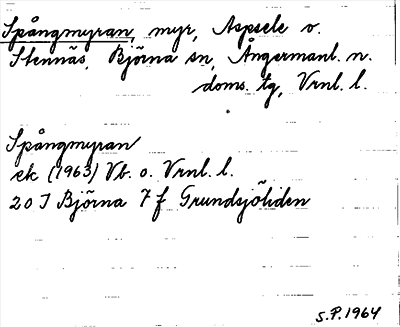 Spångmyran, myr, Aspsele o.
Stennäs, Björna sn, Ångermanl. n.
doms. tg, Vrnl. l.
Spångmyran
ek (1963) Vb. o. Vrnl. l.
20 J Björna 7 f Grundsjöliden
S.P. 1964